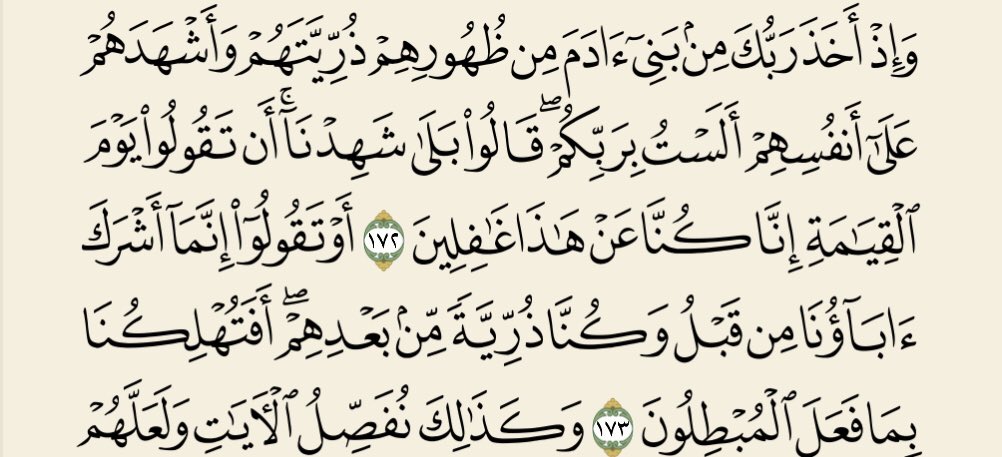 وَإِذْ أَخَذَ رَبُّكَ مِنۢ بَنِىٓ ءَادَمَ مِن ظُهُورِهِمْ ذُرِّيَّتَهُمْ وَأَشْهَدَهُمْ
عَلَىٰٓ أَنفُسِهِمْ أَلَسْتُ بِرَبِّكُمْۖ قَالُوا۟ بَلَىٰ شَهِدْنَآۚ أَن تَقُولُوا۟ يَوْمَ
ٱلْقِيَـٰمَةِ إِنَّا كُنَّا عَنْ هَـٰذَا غَـٰفِلِينَ ١٧٢ أَوْ تَقُولُوٓا۟ إِنَّمَآ أَشْرَكَ
ءَابَآؤُنَا مِن قَبْلُ وَكُنَّا ذُرِّيَّةً مِّنۢ بَعْدِهِمْۖ أَفَتُهْلِكُنَا
بِمَا فَعَلَ ٱلْمُبْطِلُونَ ١٧٣ وَكَذَٰلِكَ نُفَصِّلُ ٱلْـَٔايَـٰتِ وَلَعَلَّهُمْ